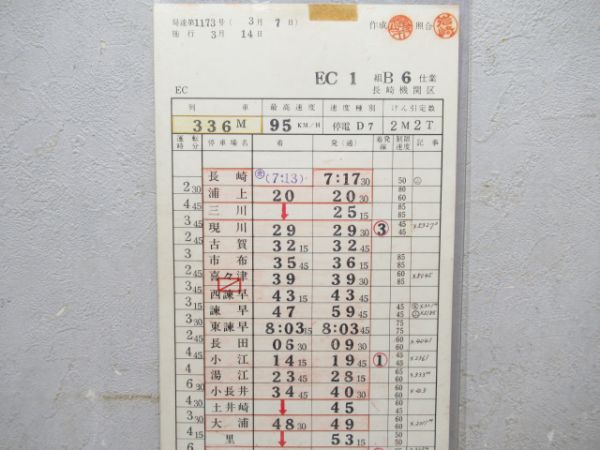 局達第1173号 ( 3月 7日 )
施行 3月 14日
作成 照合
EC 1 組 B 6 仕業
EC 長崎機関区
列車 最高速度 速度種別 けん引定数
336M 95 KM/H 停電 D7 2M2T
運転時分 停車場名 着 発(通) 着発線 制限速度 記事
長崎 (7:13) 7:17 30 50
2 30 浦上 20 20 30 80 60
4 45 三川 ↓ 25 15 85 85
3 45 現川 29 29 30 ③ 45 45
2 45 古賀 32 15 32 45
3 市布 35 45 36 15 85
2 45 喜々津 39 39 30 60
3 45 西諫早 43 15 43 45
3 15 諫早 47 59 45 45 45
3 30 東諫早 8:03 15 8:03 45 75 75
2 45 長田 06 30 09 30 60 60
4 45 小江 14 15 19 45 ① 45 45
4 湯江 23 45 28 15 60 60
6 15 小長井 34 45 40 30 60
4 30 土井崎 ↓ 45
3 45 大浦 48 30 49 60
4 15 里 ↓ 53 15